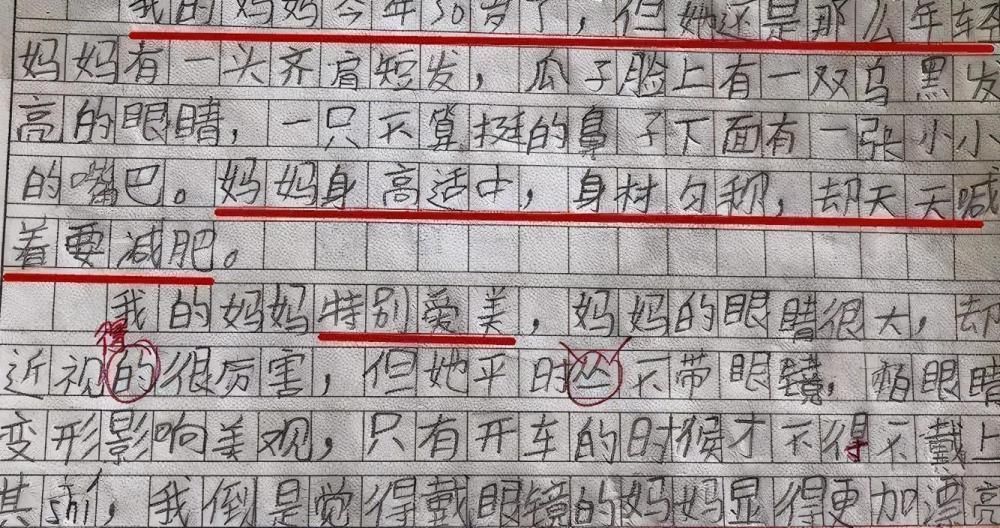 我的妈妈今年30岁了，但她还是那么年轻
妈妈有一头齐肩短发，瓜子脸上有一双乌黑发
高的眼睛，一只不算挺的鼻子下面有一张小小
的嘴巴。妈妈身高适中，身材匀称，却天天喊
着要减肥。
我的妈妈特别爱美，妈妈的眼睛很大，却
得
近视的很厉害，但她平时丛不带眼镜，怕眼睛
变形影响美观，只有开车的时候才不得不戴上
其shí，我倒是觉得戴眼镜的妈妈显得更加漂亮